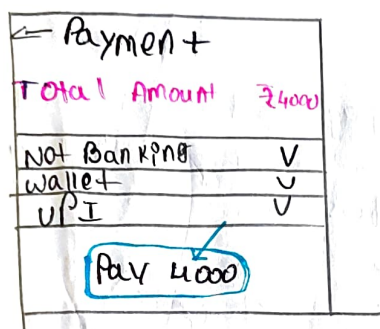 ← Payment
Total Amount ₹4000
Not Banking V
wallet V
UPI V
Pay 4000